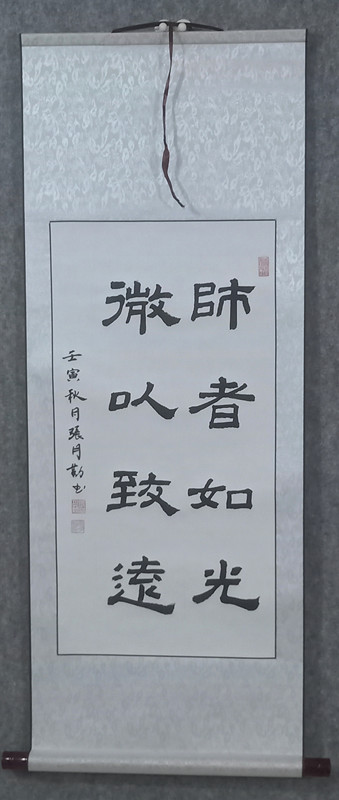 師者如光
微以致遠
壬寅秋月張月勤書